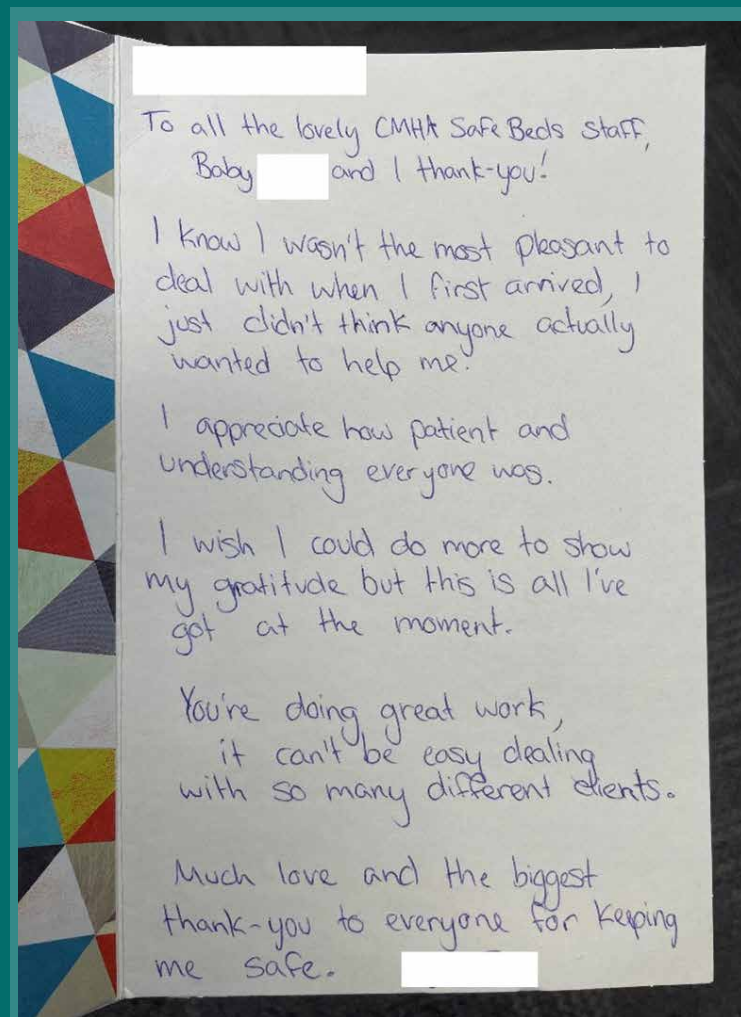 To all the lovely CMHA Safe Beds Staff,
Baby and I thank-you!
I know I wasn't the most pleasant to
deal with when I first arrived, I
just didn't think anyone actually
wanted to help me.
I appreciate how patient and
understanding everyone was.
I wish I could do more to show
my gratitude but this is all I've
got at the moment.
You're doing great work,
it can't be easy dealing
with so many different clients.
Much love and the biggest
thank-you to everyone for keeping
me safe.